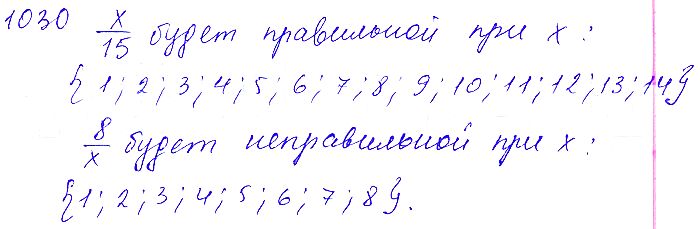 1030 x/15 будет правильной при x :
{1; 2; 3; 4; 5; 6; 7; 8; 9; 10; 11; 12; 13; 14}
8/x будет неправильной при x :
{1; 2; 3; 4; 5; 6; 7; 8}.